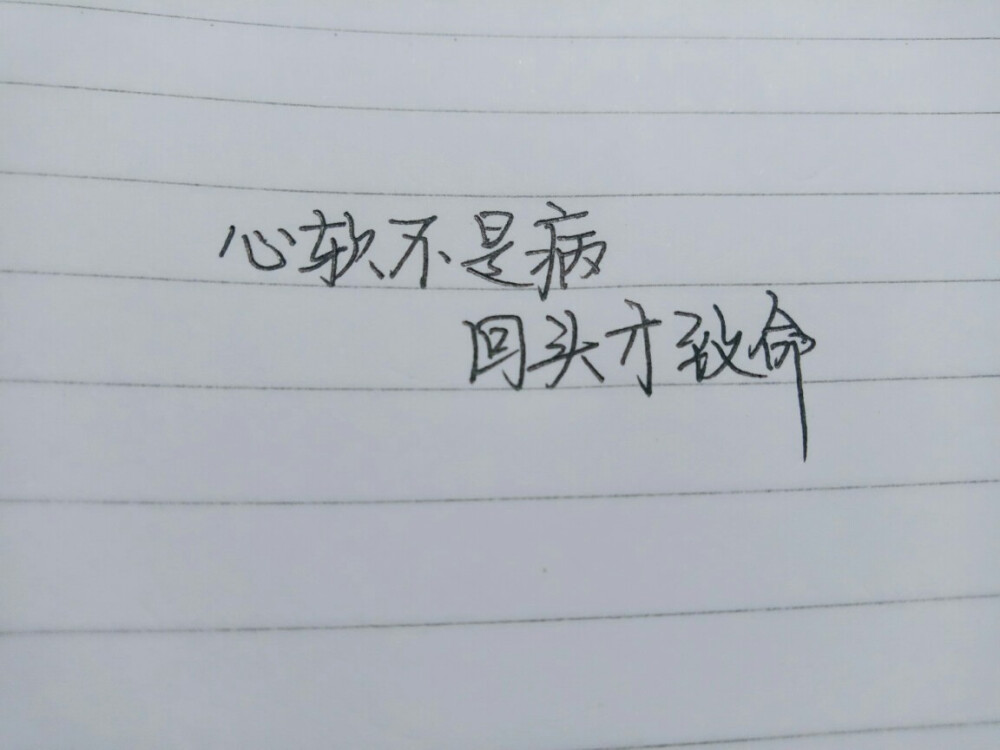 心软不是病
回头才致命